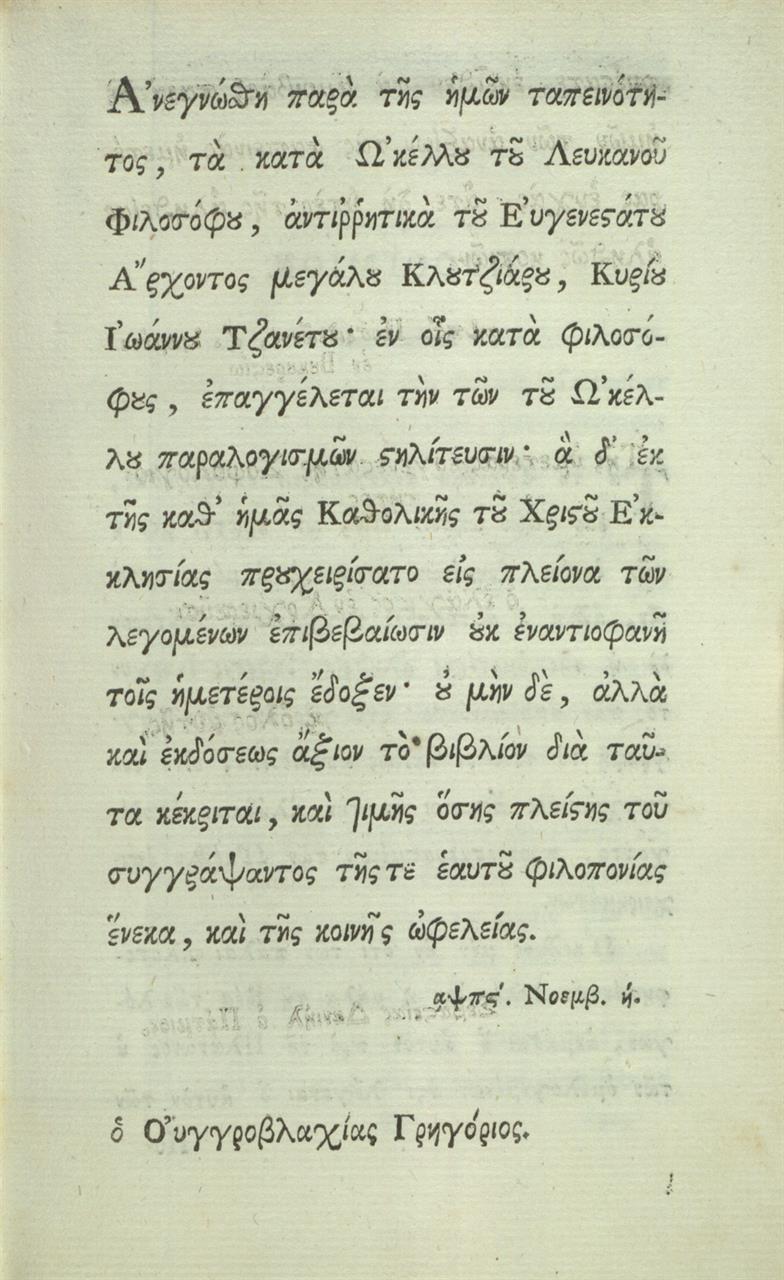 Ἀνεγνώθη παρὰ τῆς ἡμῶν ταπεινότη-
τος, τὰ κατὰ Ὠκέλλȣ τȣ͂ Λευκανοῦ
Φιλοσόφȣ, ἀντιῤῥητικὰ τȣ͂ Εὐγενεϛάτȣ
Ἄρχοντος μεγάλȣ Κλȣτζιάρȣ, Κυρίȣ
Ἰωάννȣ Τζανέτȣ· ἐν οἷς κατὰ φιλοσό-
φȣς, ἐπαγγέλεται τὴν τῶν τȣ͂ Ὠκέλ-
λȣ παραλογισμῶν ϛηλίτευσιν· ἃ δ' ἐκ
τῆς καθ' ἡμᾶς Καθολικῆς τȣ͂ Χριϛȣ͂ Ἐκ-
κλησίας πρȣχειρίσατο εἰς πλείονα τῶν
λεγομένων ἐπιβεβαίωσιν ȣ̓κ ἐναντιοφανῆ
τοῖς ἡμετέροις ἔδοξεν· ȣ̓ μὴν δὲ, ἀλλὰ
καὶ ἐκδόσεως ἄξιον τὸ βιβλίον διὰ ταῦ-
τα κέκριται, καὶ τιμῆς ὅσης πλείϛης τοῦ
συγγράψαντος τῆς τε ἑαυτȣ͂ φιλοπονίας
ἕνεκα, καὶ τῆς κοινῆς ὠφελείας.
αψπϛ'. Νοεμβ. ή.
ὁ Οὐγγροβλαχίας Γρηγόριος.